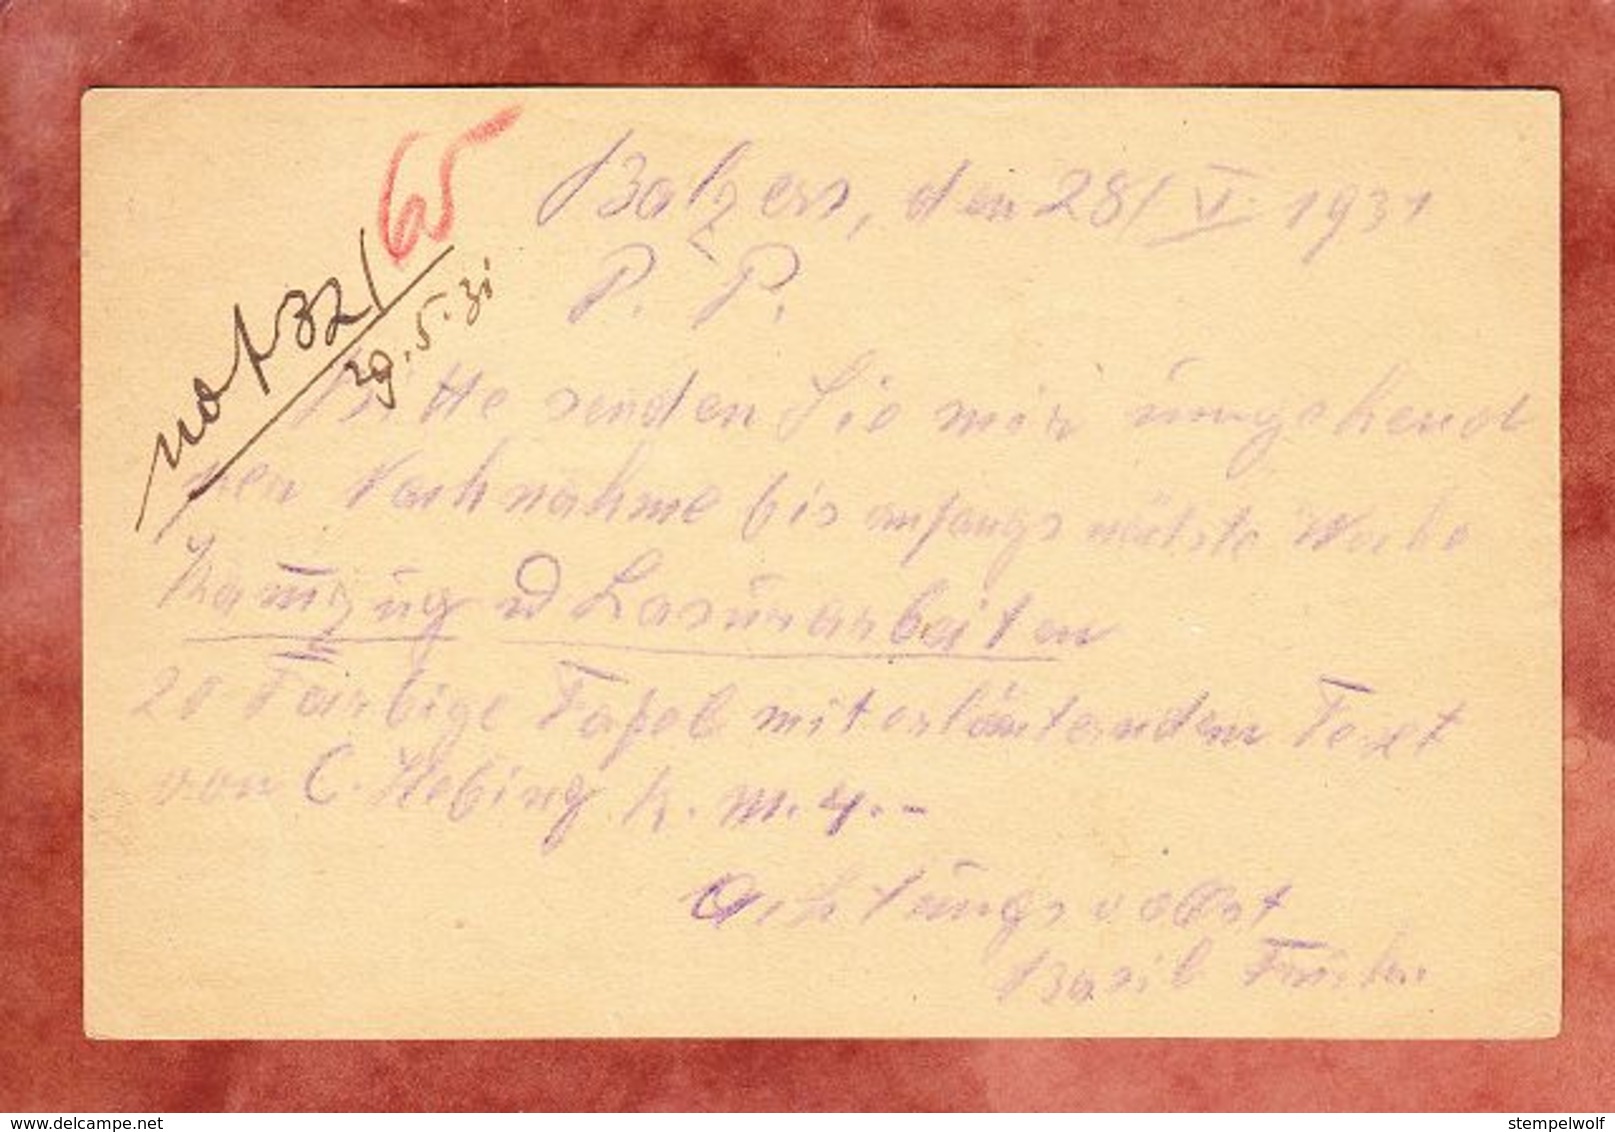 65
Balzers, den 28/V. 1931
P. P.
not 32/
29.5.31
Bitte senden Sie mir umgehend
per Nachnahme bis anfangs nächste Woche
Kammzug u Lasurarbeiten
20 Farbige Tafel mit erläuterndem Text
von C. Hebing R. M. 4.-
Achtungsvollst
Basil
delcampe.net
stempelwolf